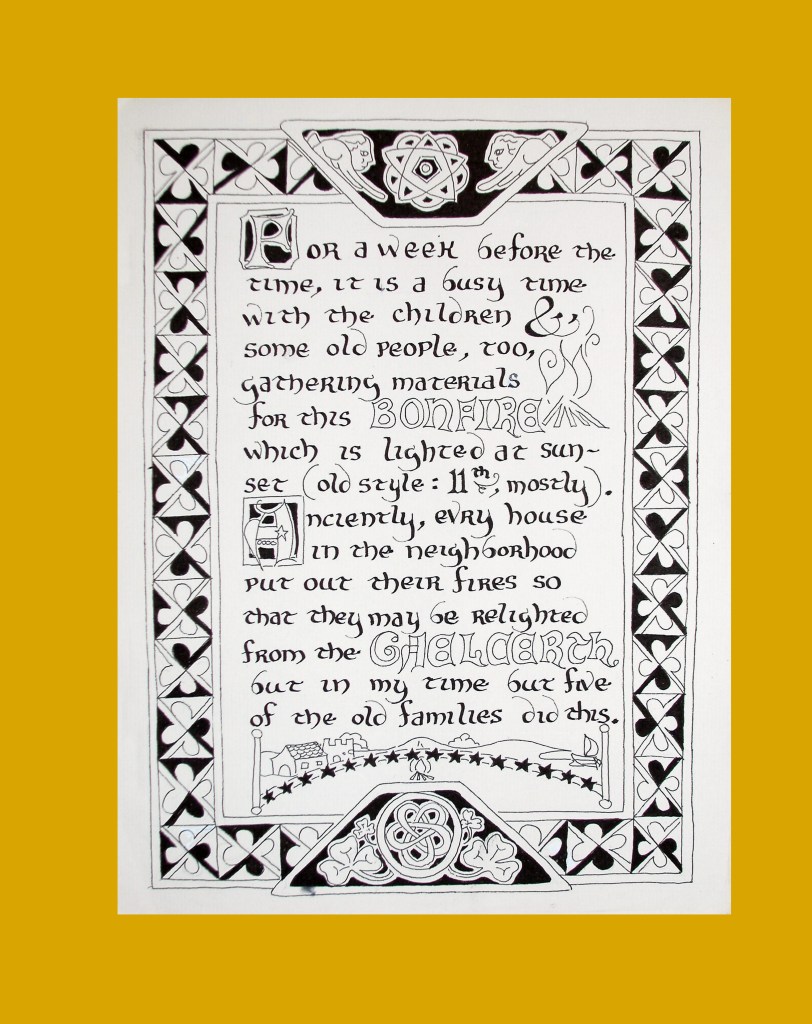 For a week before the
time, it is a busy time
with the children &
some old people, too,
gathering materials
for this BONFIRE
which is lighted at sun-
set (old style: 11th, mostly).
Anciently, evry house
in the neighborhood
put out their fires so
that they may be relighted
from the GAELCERTH
but in my time but five
of the old families did this.